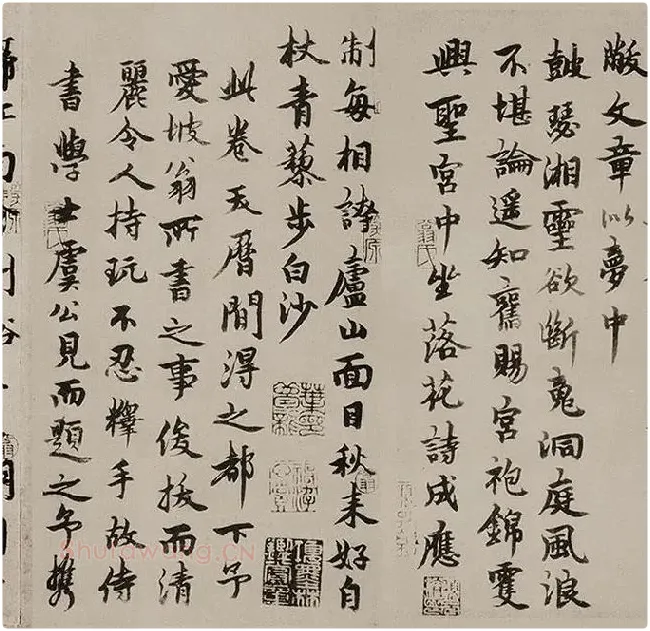 黻文章以夢中
皷瑟湘靈欲斷䰟洞庭風浪
不堪論遥知舊賜宮袍錦雙
興聖宮中坐落花詩成應
制每相誇廬山面目秋来好自
杖青藜步白沙
此卷天曆間得之都下予
愛坡翁所書之事俊拔而清
麗令人持玩不忍釋手故侍
書學士虞公見而題之予攜
Shufawang.CN